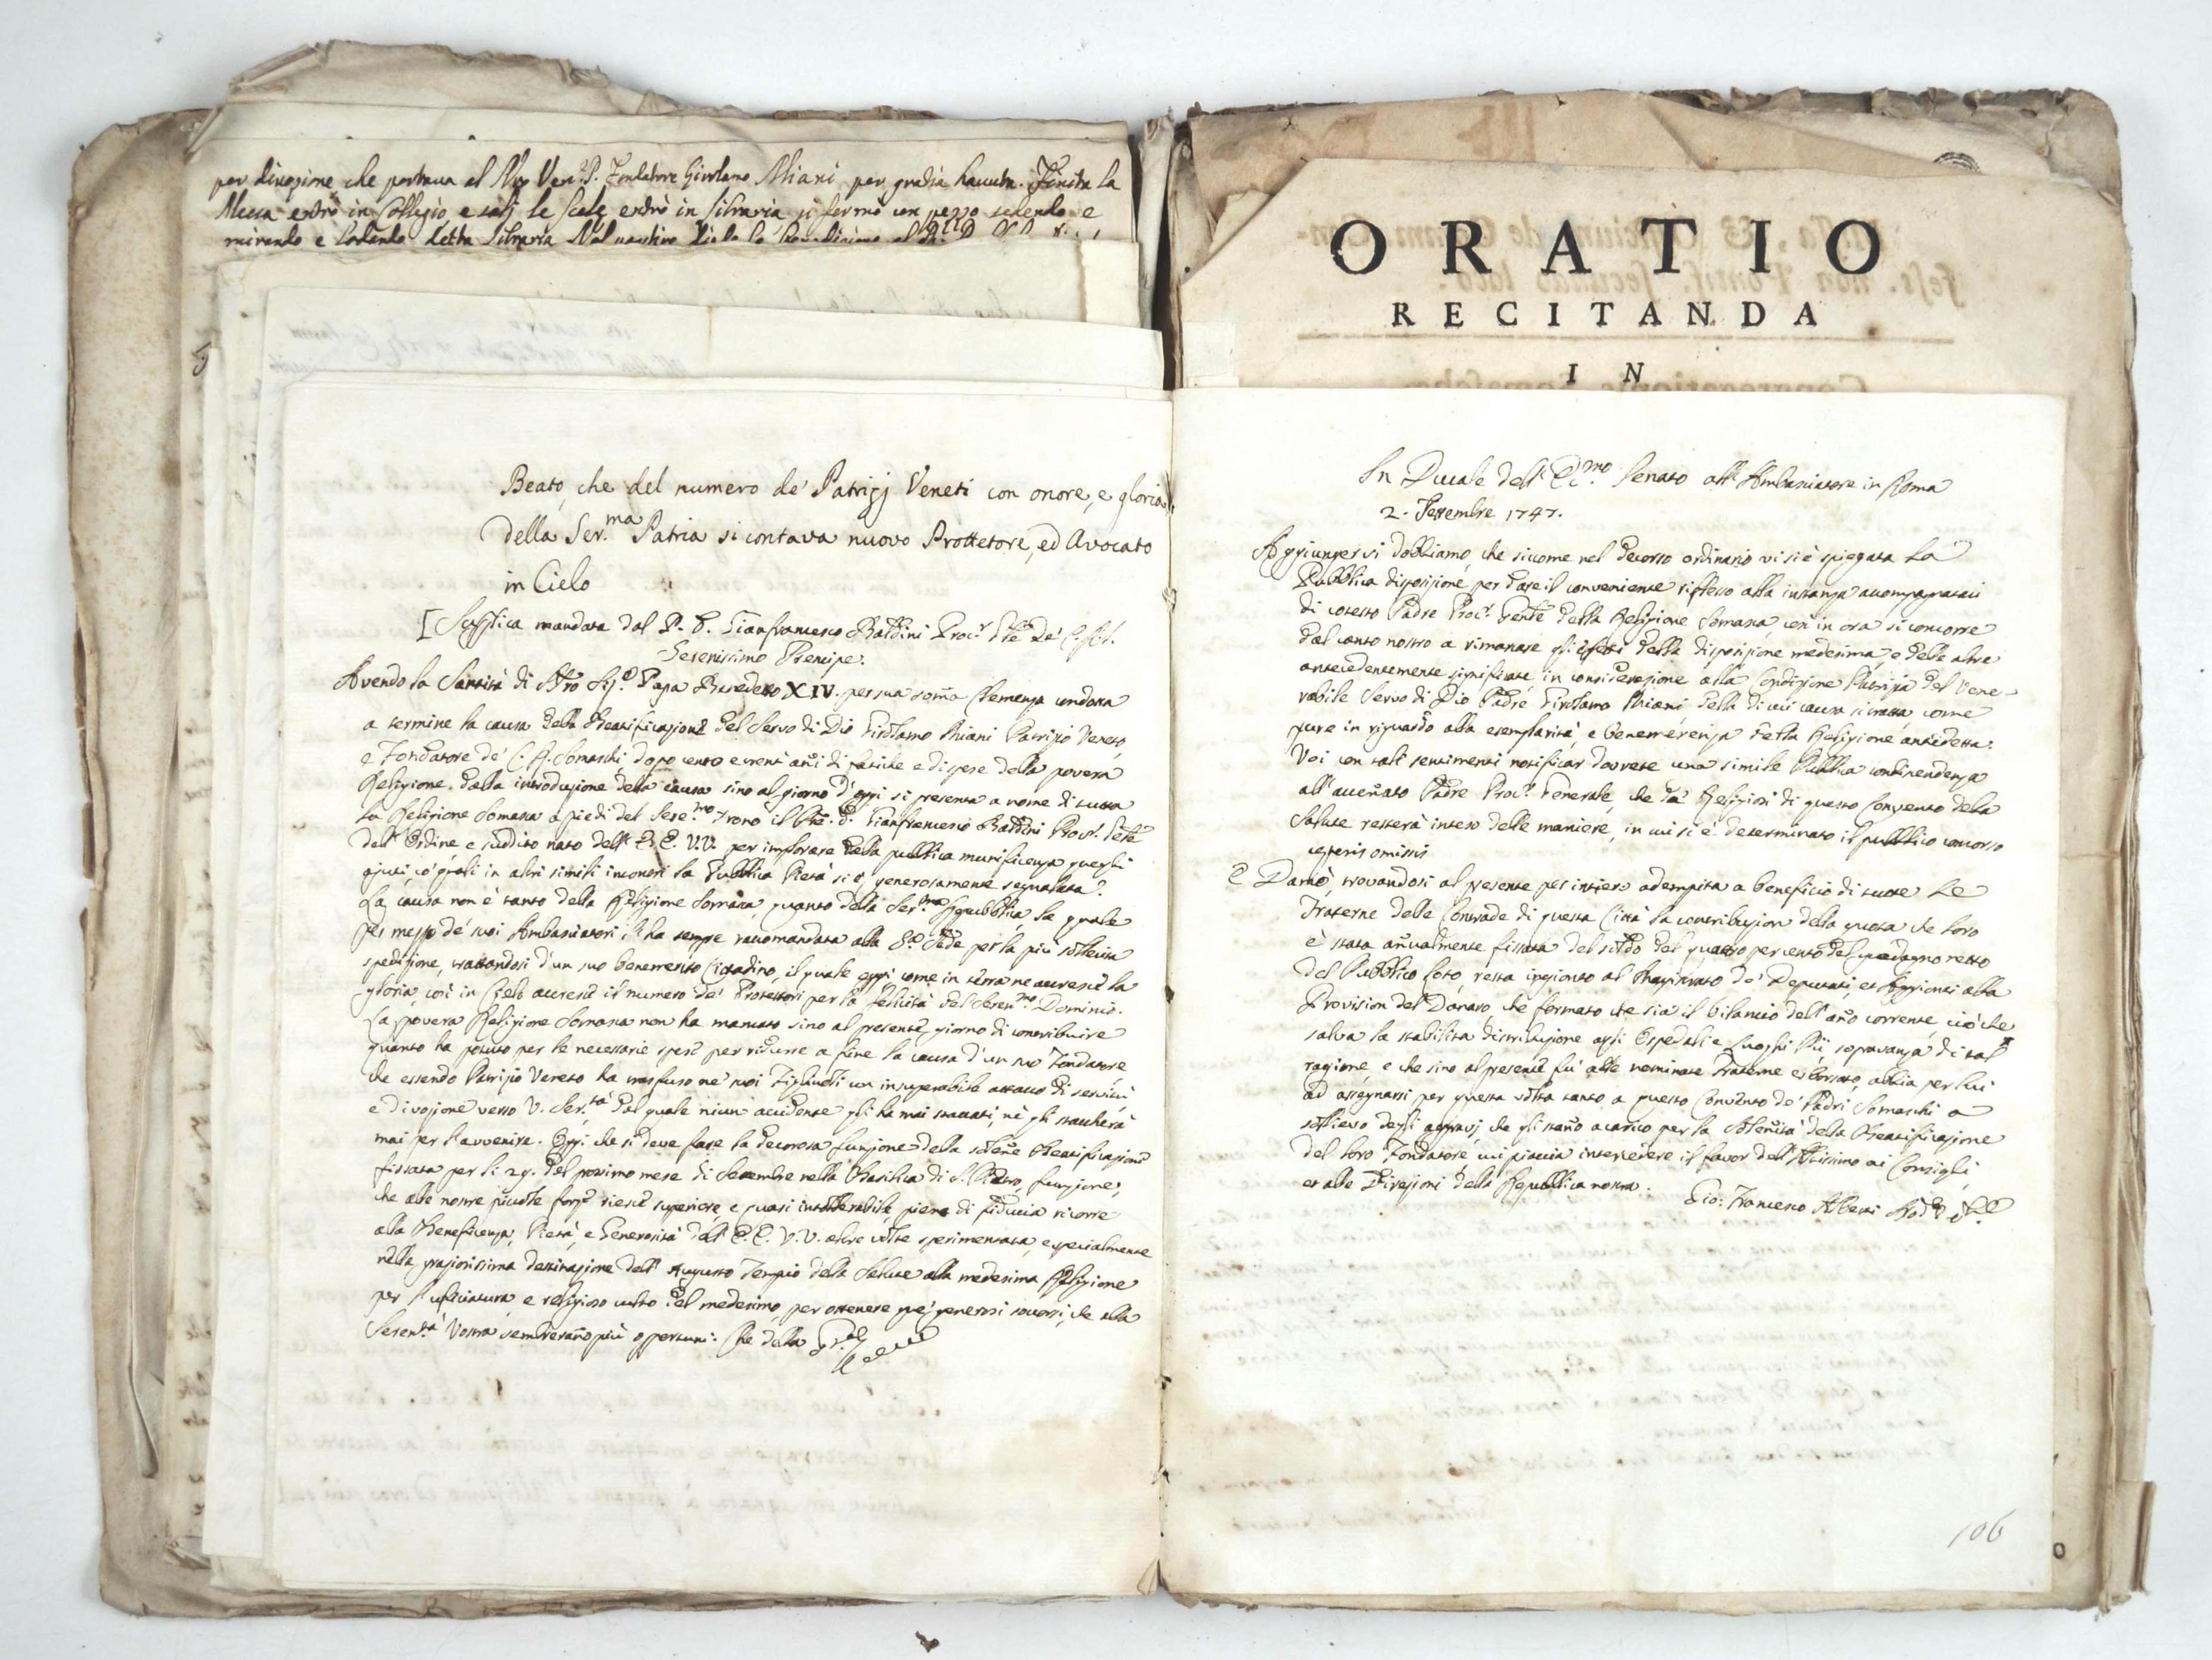 per divozione che portava al Nro Ven. P. Fondatore Girolamo Miani per gratia havuta. Finita la
Messa entrò in Collegio, e salj le scale entrò in libraria, si fermò un pezzo sedendo e
mirando e lodando detta libraria
Beato, che del numero de' Patrizj Veneti con onore, e gloria
della Ser.ma Patria si contava nuovo Prottetore, ed Avocato
in Cielo
[Supplica mandata dal P. D. Gianfrancesco Baldini Proc.r Gñle de' C. R. S.
Serenissimo Prencipe.
Avendo la Santità di Nro Sig.e Papa Benedetto XIV. per sua somã Clemenza condotta
a termine la causa della Beatificazione del Servo di Dio Girolamo Miani Patrizio Veneto,
e Fondatore de' C. R. Somaschi dopo cento e vent'añi di fatiche e di spese della povera
Religione, dalla introduzione della causa sino al giorno d'oggi si presenta a nome di tutta
la Religione Somasca a piedi del Sere.mo Trono il Pre. D. Gianfrancesco Baldini Proc.r Gñle
dell'Ordine e suddito nato dell'E. E. V.V. per implorare dalla pubblica munificenza quegli
ajuti, co' quali in altri simili incontri la Pubblica Pietà si è generosamente segnalata.
La causa non è tanto della Religione Somasca, quanto della Ser.ma Repubblica, la quale
per mezzo de' suoi Ambasciatori l'ha sempre raccomandata alla S.a Sede per la più sollecita
spedizione, trattandosi d'un suo benemerito Cittadino, il quale oggi come in terra ne accresce la
gloria, così in Cielo accresce il numero de' Protettori per la felicità del Seren.mo Dominio.
La povera Religione Somasca non ha mancato sino al presente giorno di contribuire
quanto ha potuto per le necessarie spese per ridurre a fine la causa d'un suo Fondatore
che essendo Patrizio Veneto ha trasfuso ne' suoi Figliuoli un insuperabile attacco di servitù
e divozione verso V. Ser.tà dal quale niun accidente gli ha mai staccati, nè gli staccherà
mai per l'avvenire. Oggi che si deve fare la decorosa funzione della solene Beatificazione
fissata per li 29. del prossimo mese di Settembre nella Basilica di S. Pietro, funzione,
che alle nostre piccole forze riesce superiore, e quasi intollerabile, piena di fiducia ricorre
alla Beneficenza, Pietà, e Generosità dell'E. E. V.V. altre volte sperimentata, e specialmente
nella graziosissima destinazione dell'Augusto Tempio della Salute alla medesima Religione
per l'ufficiatura, e religioso culto del medesimo per ottenere que' generosi soccorsi, che alla
Seren.tà Vostra sembrerano più opportuni. Che della Gra.
ORATIO
RECITANDA
IN
In Ducale dell'Ec.mo Senato all'Ambasciatore in Roma
2. Settembre 1747.
Aggiungervi dobbiamo, che siccome nel decorso ordinario vi si è spiegata la
Pubblica disposizione per dare il conveniente riflesso alla instanza accompagnataci
di cotesto Padre Proc.r Genle della Religione Somasca, così in ora si concorre
dal canto nostro a rimarcare gli effetti della disposizione medesima, e delle altre
antecedentemente significate in considerazione alla Condizione Patrizia del Vene-
rabile Servo di Dio Padre Girolamo Miani, della di cui causa si tratta, come
pure in riguardo alla esemplarità, e benemerenza della Religione antedetta.
Voi con tali sentimenti notificar dovrete una simile Pubblica condiscendenza
all'accenato Padre Proc.r Generale, che da' Religiosi di questo Convento della
Salute resterà inteso delle maniere, in cui si è determinato il pubblico concorso
ceteris omissis
E Damò, trovandosi al presente per intiero adempita a beneficio di tutte le
Fraterne delle Contrade di questa Città la contribuzion della quota che loro
è stata añualmente fissata del soldo del quattro per cento del guadagno netto
del Pubblico Loto, resta ingionto al Magistrato de' Deputati, et Aggionti alla
Provision del Danaro, che formato che sia il bilancio dell'año corrente, ciò che
salva la stabilita distribuzione agli Ospedali e Luoghi Pii, sopravanza di tal
ragione, e che sino al presente fu' alle nominate Fraterne esborsato, abbia per lui
ad assegnarsi per questa volta tanto a questo Convento de' Padri Somaschi a
sollievo degli aggravj, che gli stano a carico per la solenità della Beatificazione
del loro Fondatore, cui piaccia intercedere il favor dell'Altissimo ai Consigli,
et alle Direzioni della Repubblica nostra.
Gio: Francesco Alberti
106